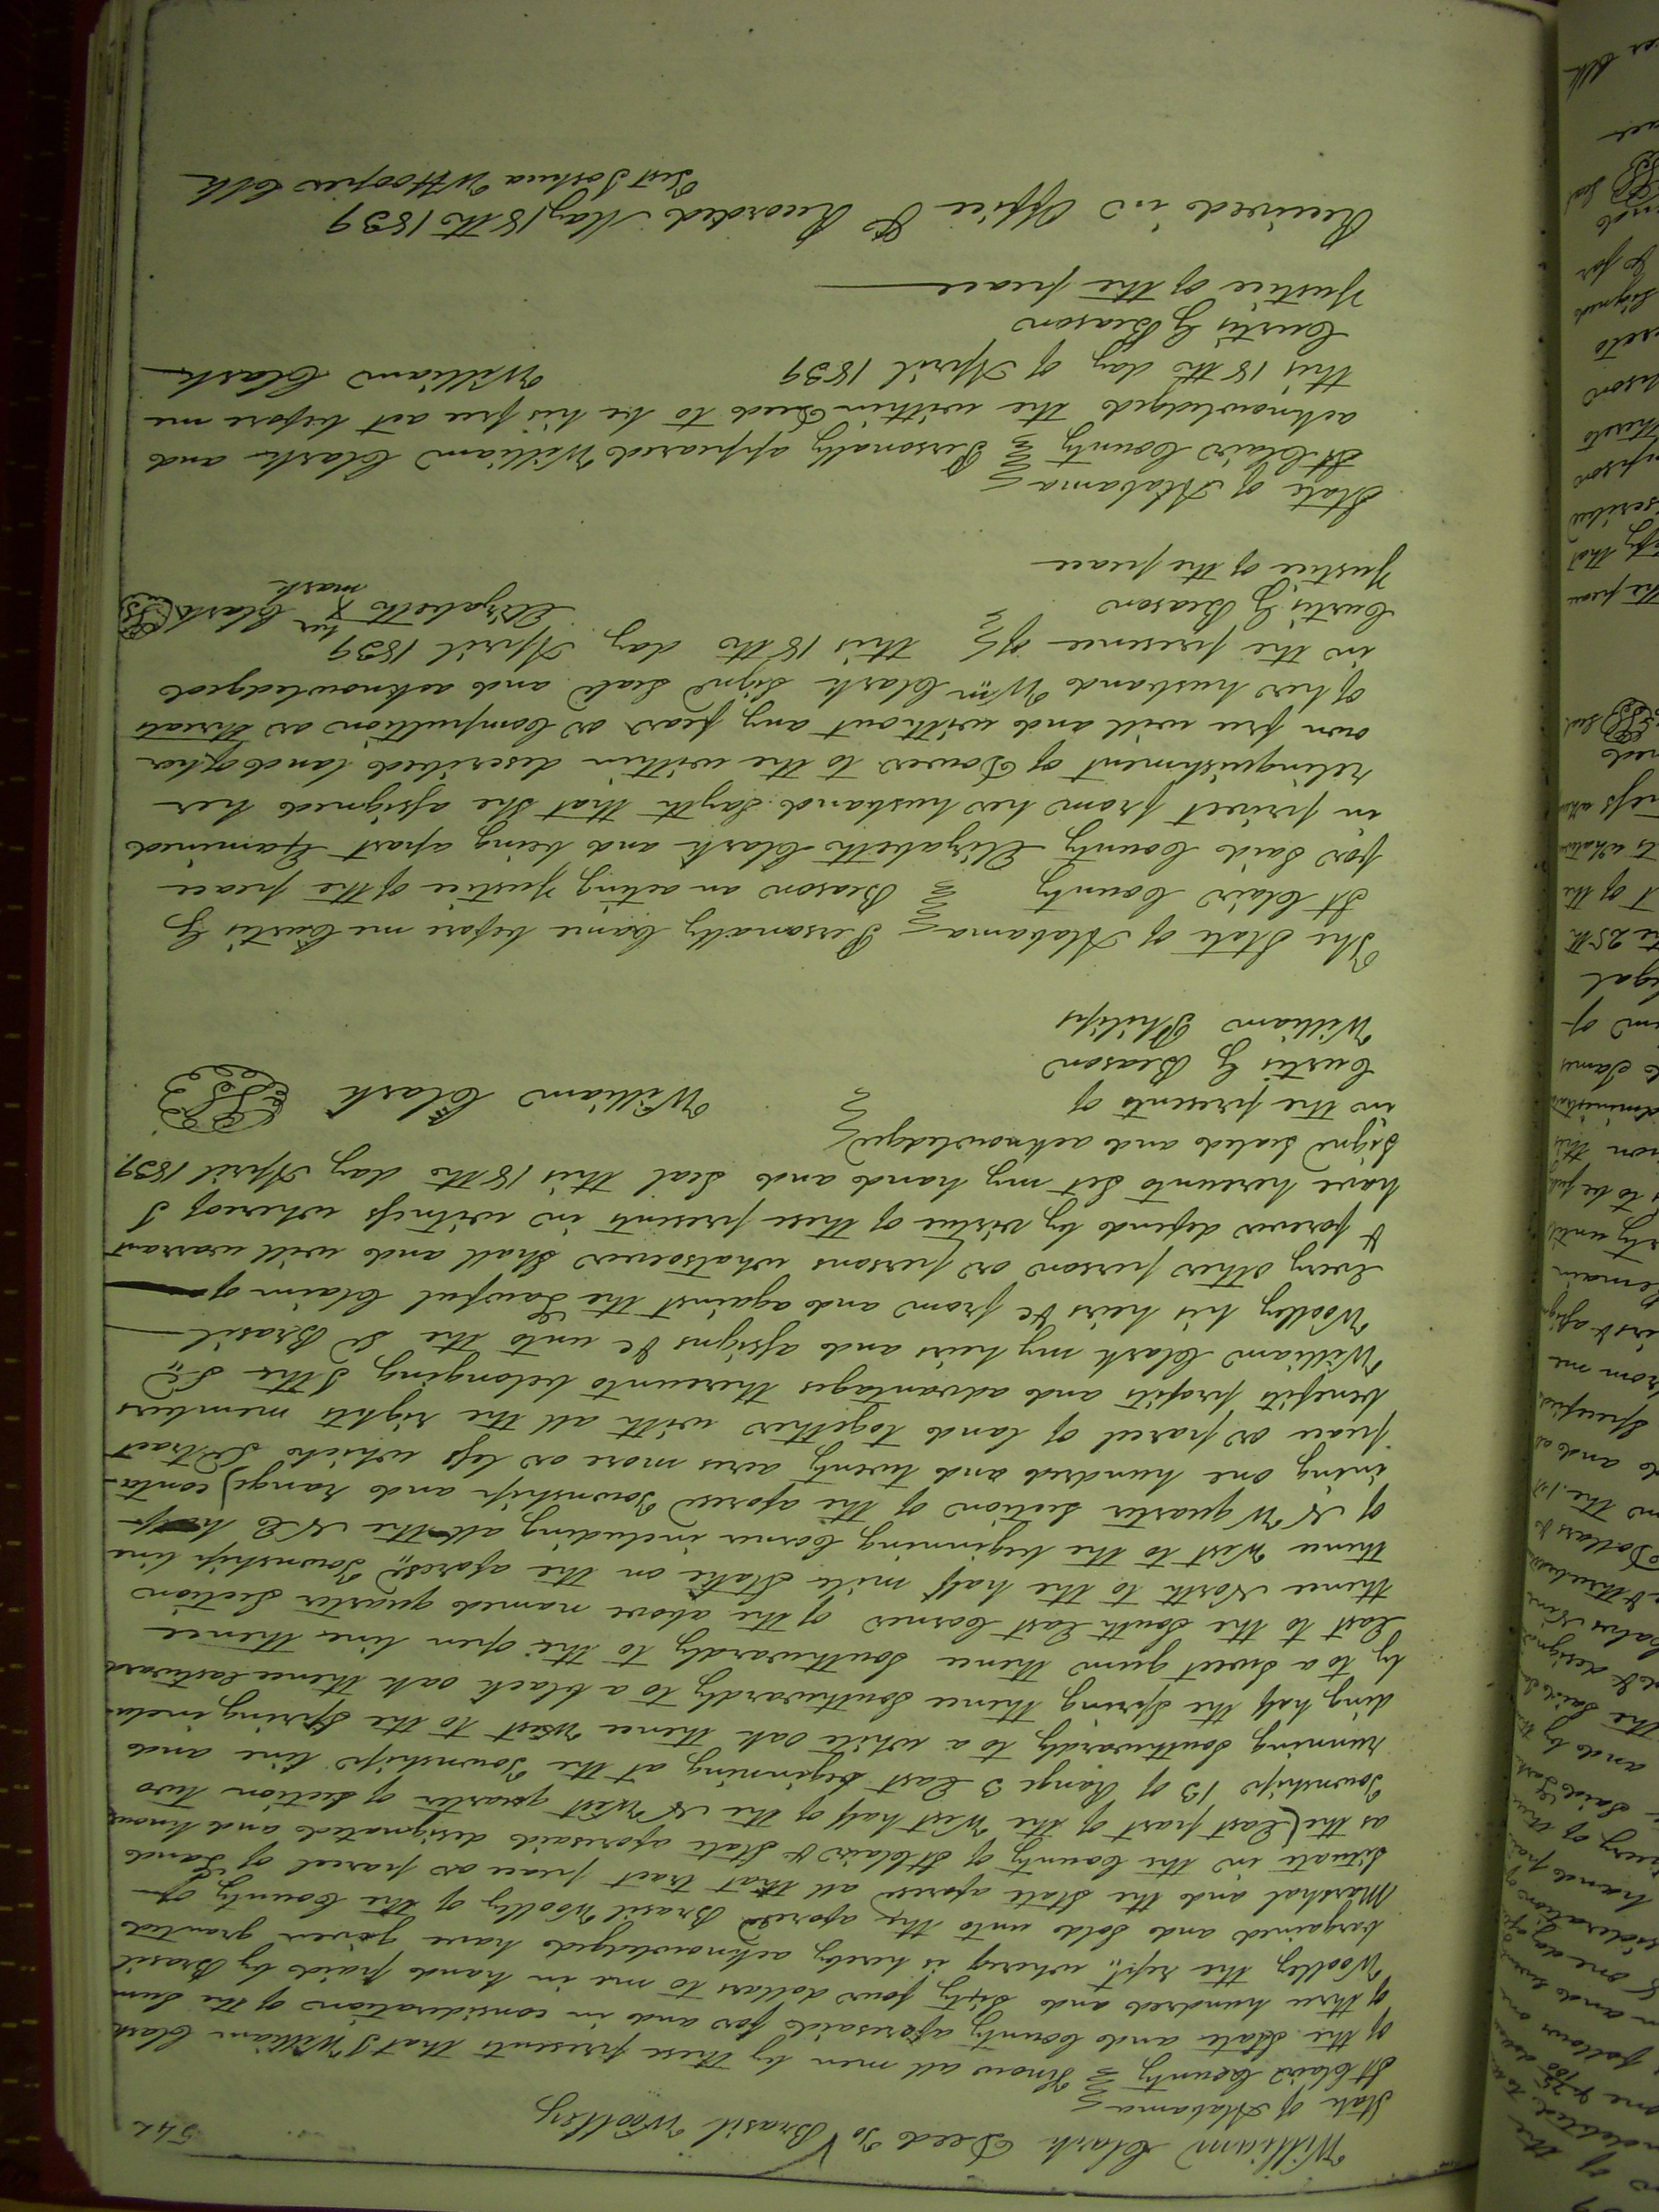 542
William Clark Deed To Brasil Woolley
State of Alabama
St Clair County Know all men by these presents that I William Clark
of the State and County aforesaid for and in consideration of the Sum
of three hundred and Sixty four dollars to me in hand paid by Brasil
Woolley the rept,, whereof is hereby acknowledged have given granted
bargained and Sold unto the aforesd Brasil Woolley of the County of
Marshal and the State aforesd all that tract peace or parcel of Land
Situate in the County of St Clair & State aforesaid designated and known
as the (East part of the West half of the N West quarter of Section two
Township 13 of Range 3 East beginning at the Township line and
running Southwardly to a white oak thence West to the Spring inclu-
ding half the Spring thence Southwardly to a black oak thence Eastward
ly to a Sweet gum thence Southwardly to the open line thence
East to the South East Corner of the above named quarter Section
thence North to the half mile Stake on the aforesd,, Township line
thence West to the beginning Corner including all the N E half
of N W quarter Section of the aforesd Township and range) conta-
ining one hundred and twenty acres more or less which Sd tract
peace or parcel of land together with all the rights members
benefits profits and advantages thereunto belonging I the Sd,,
William Clark my heirs and assigns &c unto the Sd Brasil
Woolley his heirs &c from and against the Lawful Claim of
Every other person or persons whatsoever Shall and will warrant
& forever defend by virtue of these presents in witness whereof I
have hereunto Set my hand and Seal this 18th day April 1839.
Signd Sealed and acknowledged
in the presents of
William Clark
Curtis G Beason
William Philips
The State of Alabama Personally Came before me Curtis G
St Clair County Beason an acting Justice of the peace
for Said County Elizabeth Clark and being apart Examined
in privet from her husband Sayth that she assigned her
relinquishment of Dower to the within described land of her
own free will and without any fear or Compultion or threats
of her husband Wm Clark Signd Seald and acknowledged
in the presence of this 18th day April 1839
Curtis G Beason Elizabeth her X mark Clark
Justice of the peace
State of Alabama
St Clair County Personally appeared William Clark and
acknowledged the within Deed to be his free act before me
this 18th day of April 1839 William Clark
Curtis G Beason
Justice of the peace
Received in Office & Recorded May 18th 1839
Test Joshua W Hooper Clk